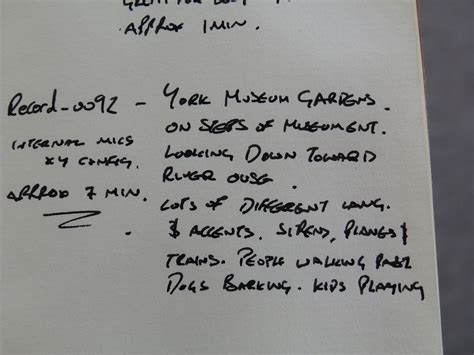 APPROX 1 MIN.
Record_0092 - YORK MUSEUM GARDENS.
ON STEPS OF MUSEUMENT.
INTERNAL MICS
XY CONFIG.
LOOKING DOWN TOWARD
RIVER OUSE.
APPROX 7 MIN.
LOTS OF DIFFERENT LANG.
& ACCENTS. SIRENS, PLANES &
TRAINS. PEOPLE WALKING PAST
DOGS BARKING. KIDS PLAYING